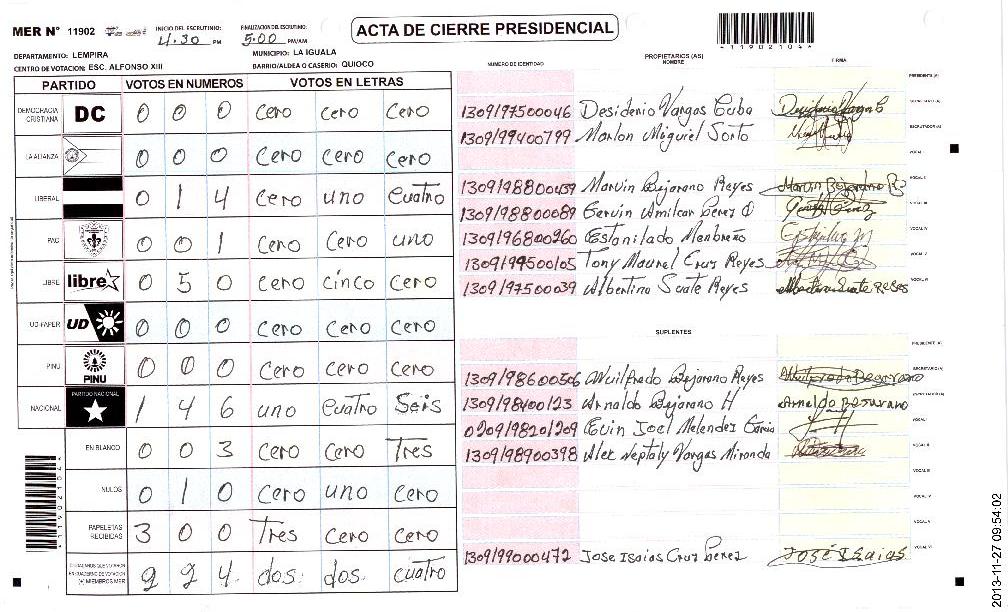 MER N° 11902 INICIO DEL ESCRUTINIO: 4:30 PM FINALIZACION DEL ESCRUTINIO: 5:00 PM/AM
ACTA DE CIERRE PRESIDENCIAL
*11902104*
DEPARTAMENTO: LEMPIRA MUNICIPIO: LA IGUALA
CENTRO DE VOTACION: ESC. ALFONSO XIII BARRIO/ALDEA O CASERIO: QUIOCO
PARTIDO VOTOS EN NUMEROS VOTOS EN LETRAS
DEMOCRACIA CRISTIANA DC 0 0 0 Cero Cero Cero
LA ALIANZA 0 0 0 Cero Cero Cero
LIBERAL 0 1 4 Cero uno Cuatro
PAC 0 0 1 Cero Cero uno
LIBRE libre 0 5 0 Cero Cinco Cero
UD-FAPER UD 0 0 0 Cero Cero Cero
PINU PINU 0 0 0 Cero Cero Cero
NACIONAL PARTIDO NACIONAL 1 4 6 uno Cuatro Seis
EN BLANCO 0 0 3 Cero Cero Tres
NULOS 0 1 0 Cero uno Cero
PAPELETAS RECIBIDAS 3 0 0 Tres Cero Cero
CIUDADANOS QUE VOTARON EN CUADERNO DE VOTACION (+) MIEMBROS MER 2 2 4 dos dos cuatro
*11902104*
NÚMERO DE IDENTIDAD PROPIETARIOS (AS) NOMBRE FIRMA
PRESIDENTE (A)
1309197500046 Desiderio Vargas Cuba SECRETARIO (A)
1309199400799 Marlon Miguiel Sorto ESCRUTADOR (A)
VOCAL I
1309198800439 Marvin Bejarano Reyes Marvin Bejarano R VOCAL II
1309198800089 Gervin Amilcar Perez VOCAL III
1309196800260 Estanilado Menbreño VOCAL IV
1309199500105 Tony Maurel Cruz Reyes VOCAL V
1309197500039 Albertina Suate Reyes Albertina Suate Reyes VOCAL VI
SUPLENTES
PRESIDENTE (A)
1309198600506 Wuilfredo Bejarano Reyes Wuilfredo Bejarano SECRETARIO (A)
1309198400123 Arnaldo Bejarano H Arnaldo Bejarano ESCRUTADOR (A)
0209198201209 Evin Joel Melendez Garcia VOCAL I
1309198900398 Alex Neptaly Vargas Miranda VOCAL II
VOCAL III
VOCAL IV
VOCAL V
1309199000472 Jose Isaias Cruz Perez JOSÉ ISAIAS VOCAL VI
2013-11-27 09:54:02